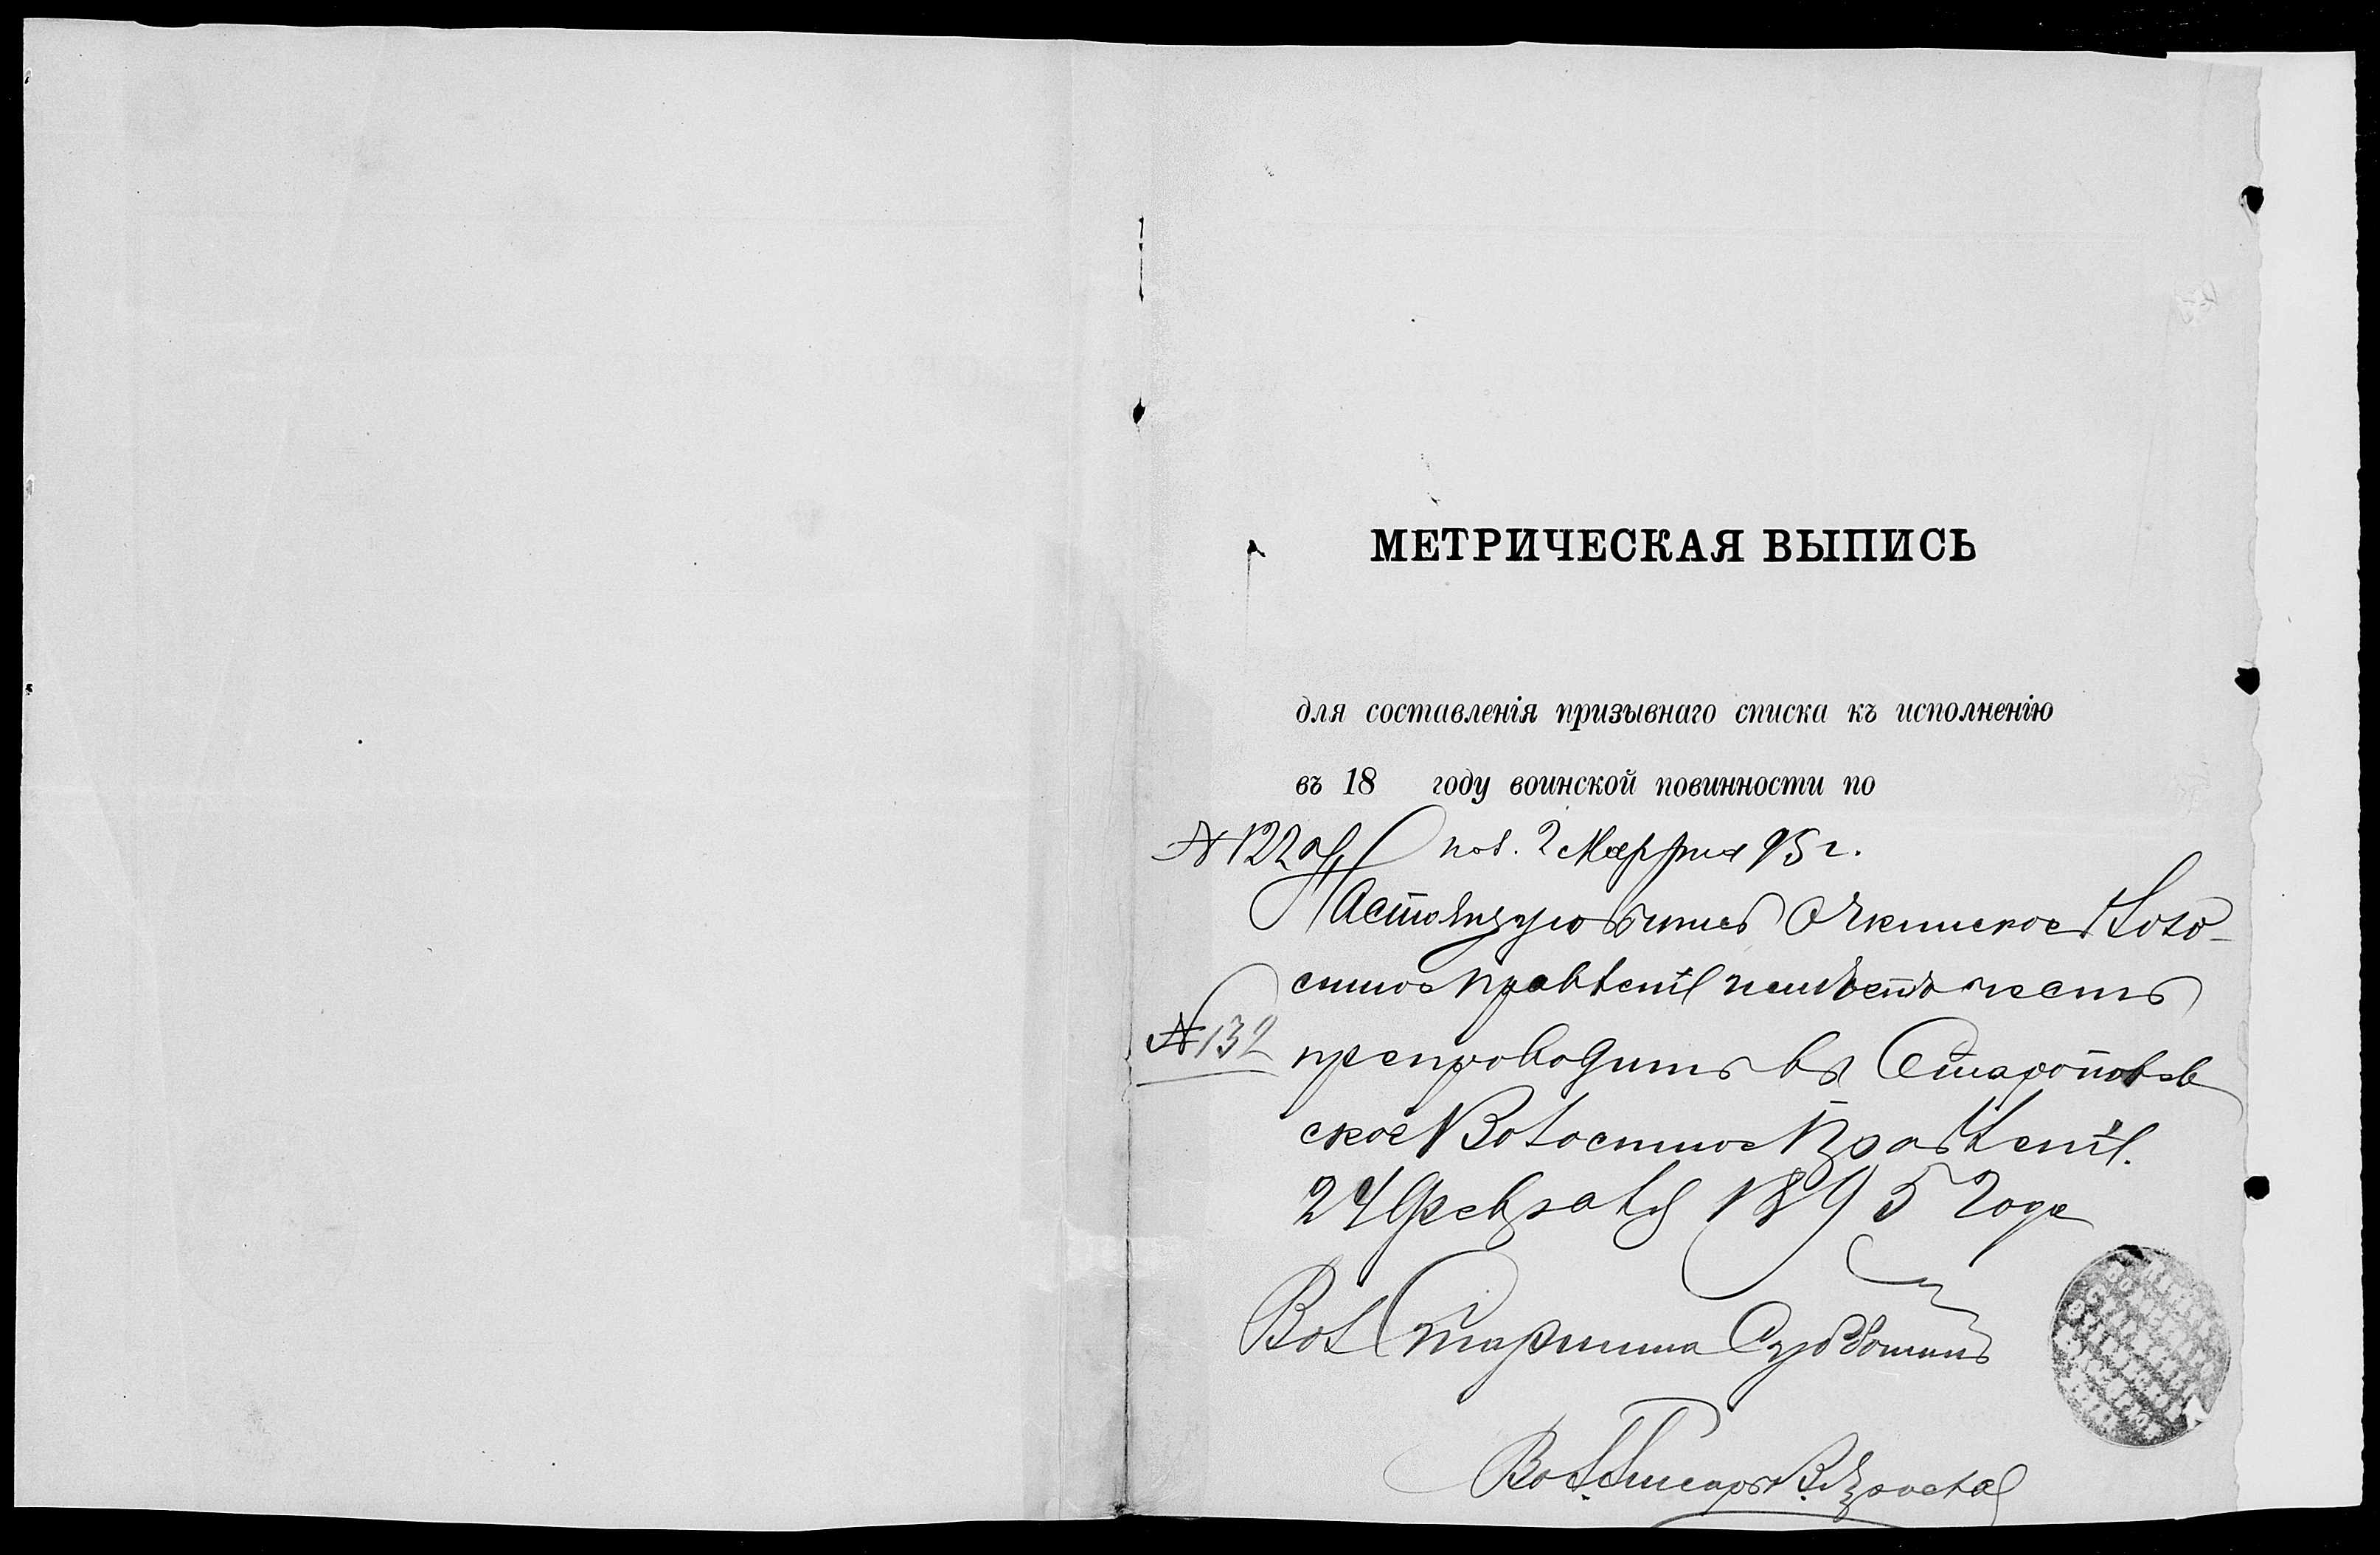 МЕТРИЧЕСКАЯ ВЫПИСЬ
для составленія призывнаго списка къ исполненію
въ 18 году воинской повинности по
№ 122 пол. 2 Марта 95 г.
Настоящую выпись Очкинское Воло-
стное Правленіе имѣетъ честь
№ 132 препроводить въ
ское Волостное Правленіе.
24 Февраля 1895 года
Вол Старшина Субботинъ
Вол. Писарь В.